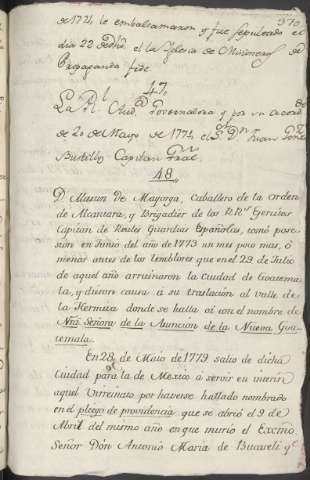 370
de 1724 le embalsamaron y fue sepultado el
dia 22 de Dhõ. el la Yglesia de Misioneros de
Propaganda fide
47.
La Rl. Aud.ª Governadora y por su acordo
de 20 de Mayo de 1774 el Sr. Dn. Juan Gonz.
Bustillo Capitan Gral.
48.
D. Martin de Mayorga, Caballero de la orden
de Alcantara, y Brigadier de los Rs. Exercitos
Capitan de Reales Guardias Españolas, tomó pose-
sion en Junio del año de 1773 un mes poco mas, ó
menos antes de los temblores que en el 29 de Julio
de aquel año arruinaron la Ciudad de Goatema-
la, y dieron causa á su traslacion al valle de
la Hermita donde se halla oi con el nombre de
Nrã Señora de la Asuncion de la Nueva Goa-
temala.
En 28 de Maio de 1779 salio de dicha
Ciudad para la de Mexico á servir en interin
aquel Virreinato por haverse hallado nombrado
en el pliego de providencia que se abrió el 9 de
Abril del mismo año en que murio el Excmõ
Señor Dón Antonio Maria de Bucareli qe.